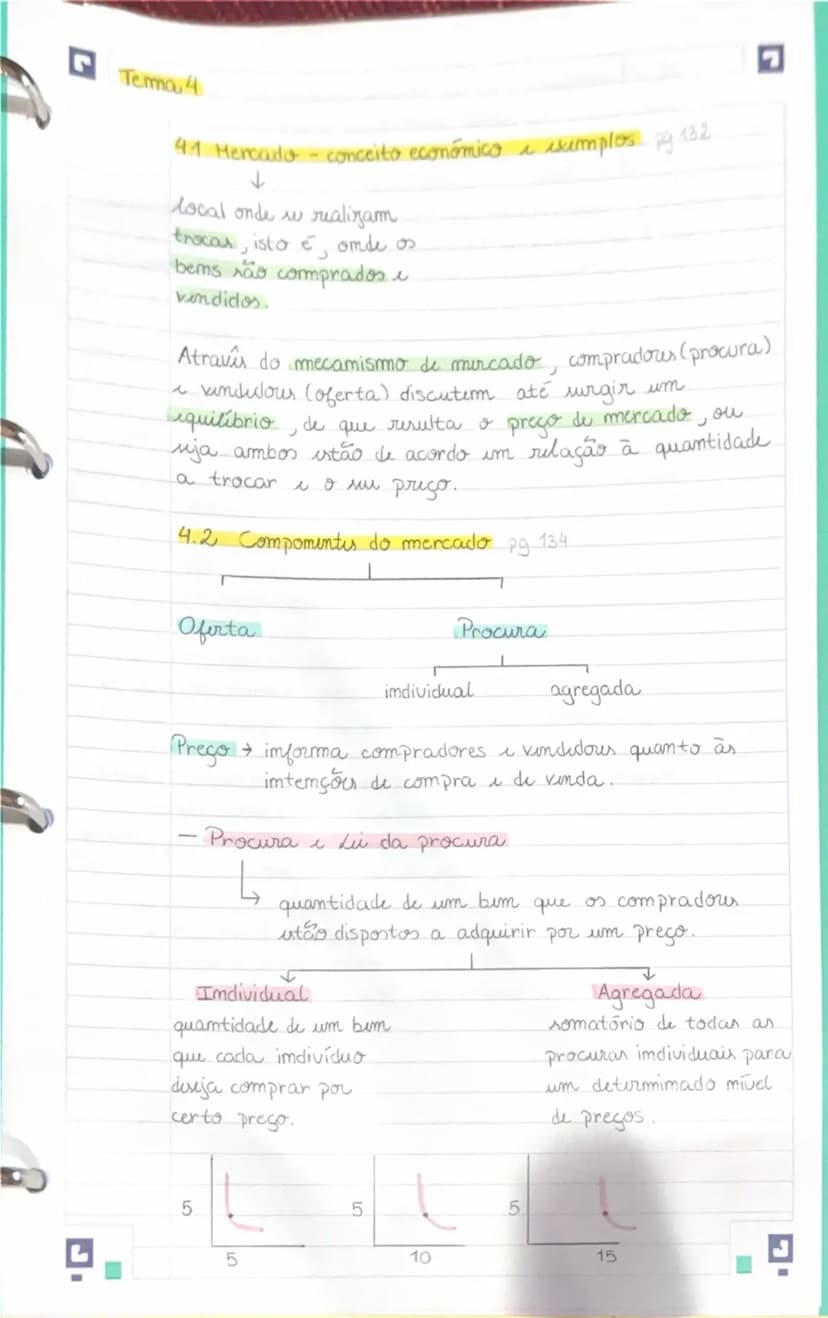 Tema 4
4.1 Mercado - conceito económico e exemplos pg 132
↓
local onde se realizam
trocas, isto é, onde os
bens são comprados e
vendidos.
Através do mecanismo de mercado, compradores (procura)
e vendedores (oferta) discutem até surgir um
equilíbrio, de que resulta o preço de mercado, ou
seja ambos estão de acordo em relação à quantidade
a trocar e o seu preço.
4.2 Componentes do mercado pg 134
Oferta Procura
individual agregada
Preço → informa compradores e vendedores quanto às
intenções de compra e de venda.
- Procura e Lei da procura
↳ quantidade de um bem que os compradores
estão dispostos a adquirir por um preço.
Individual Agregada
quantidade de um bem somatório de todas as
que cada indivíduo procuras individuais para
deseja comprar por um determinado nível
certo preço. de preços.
5 5 5
5 10 15